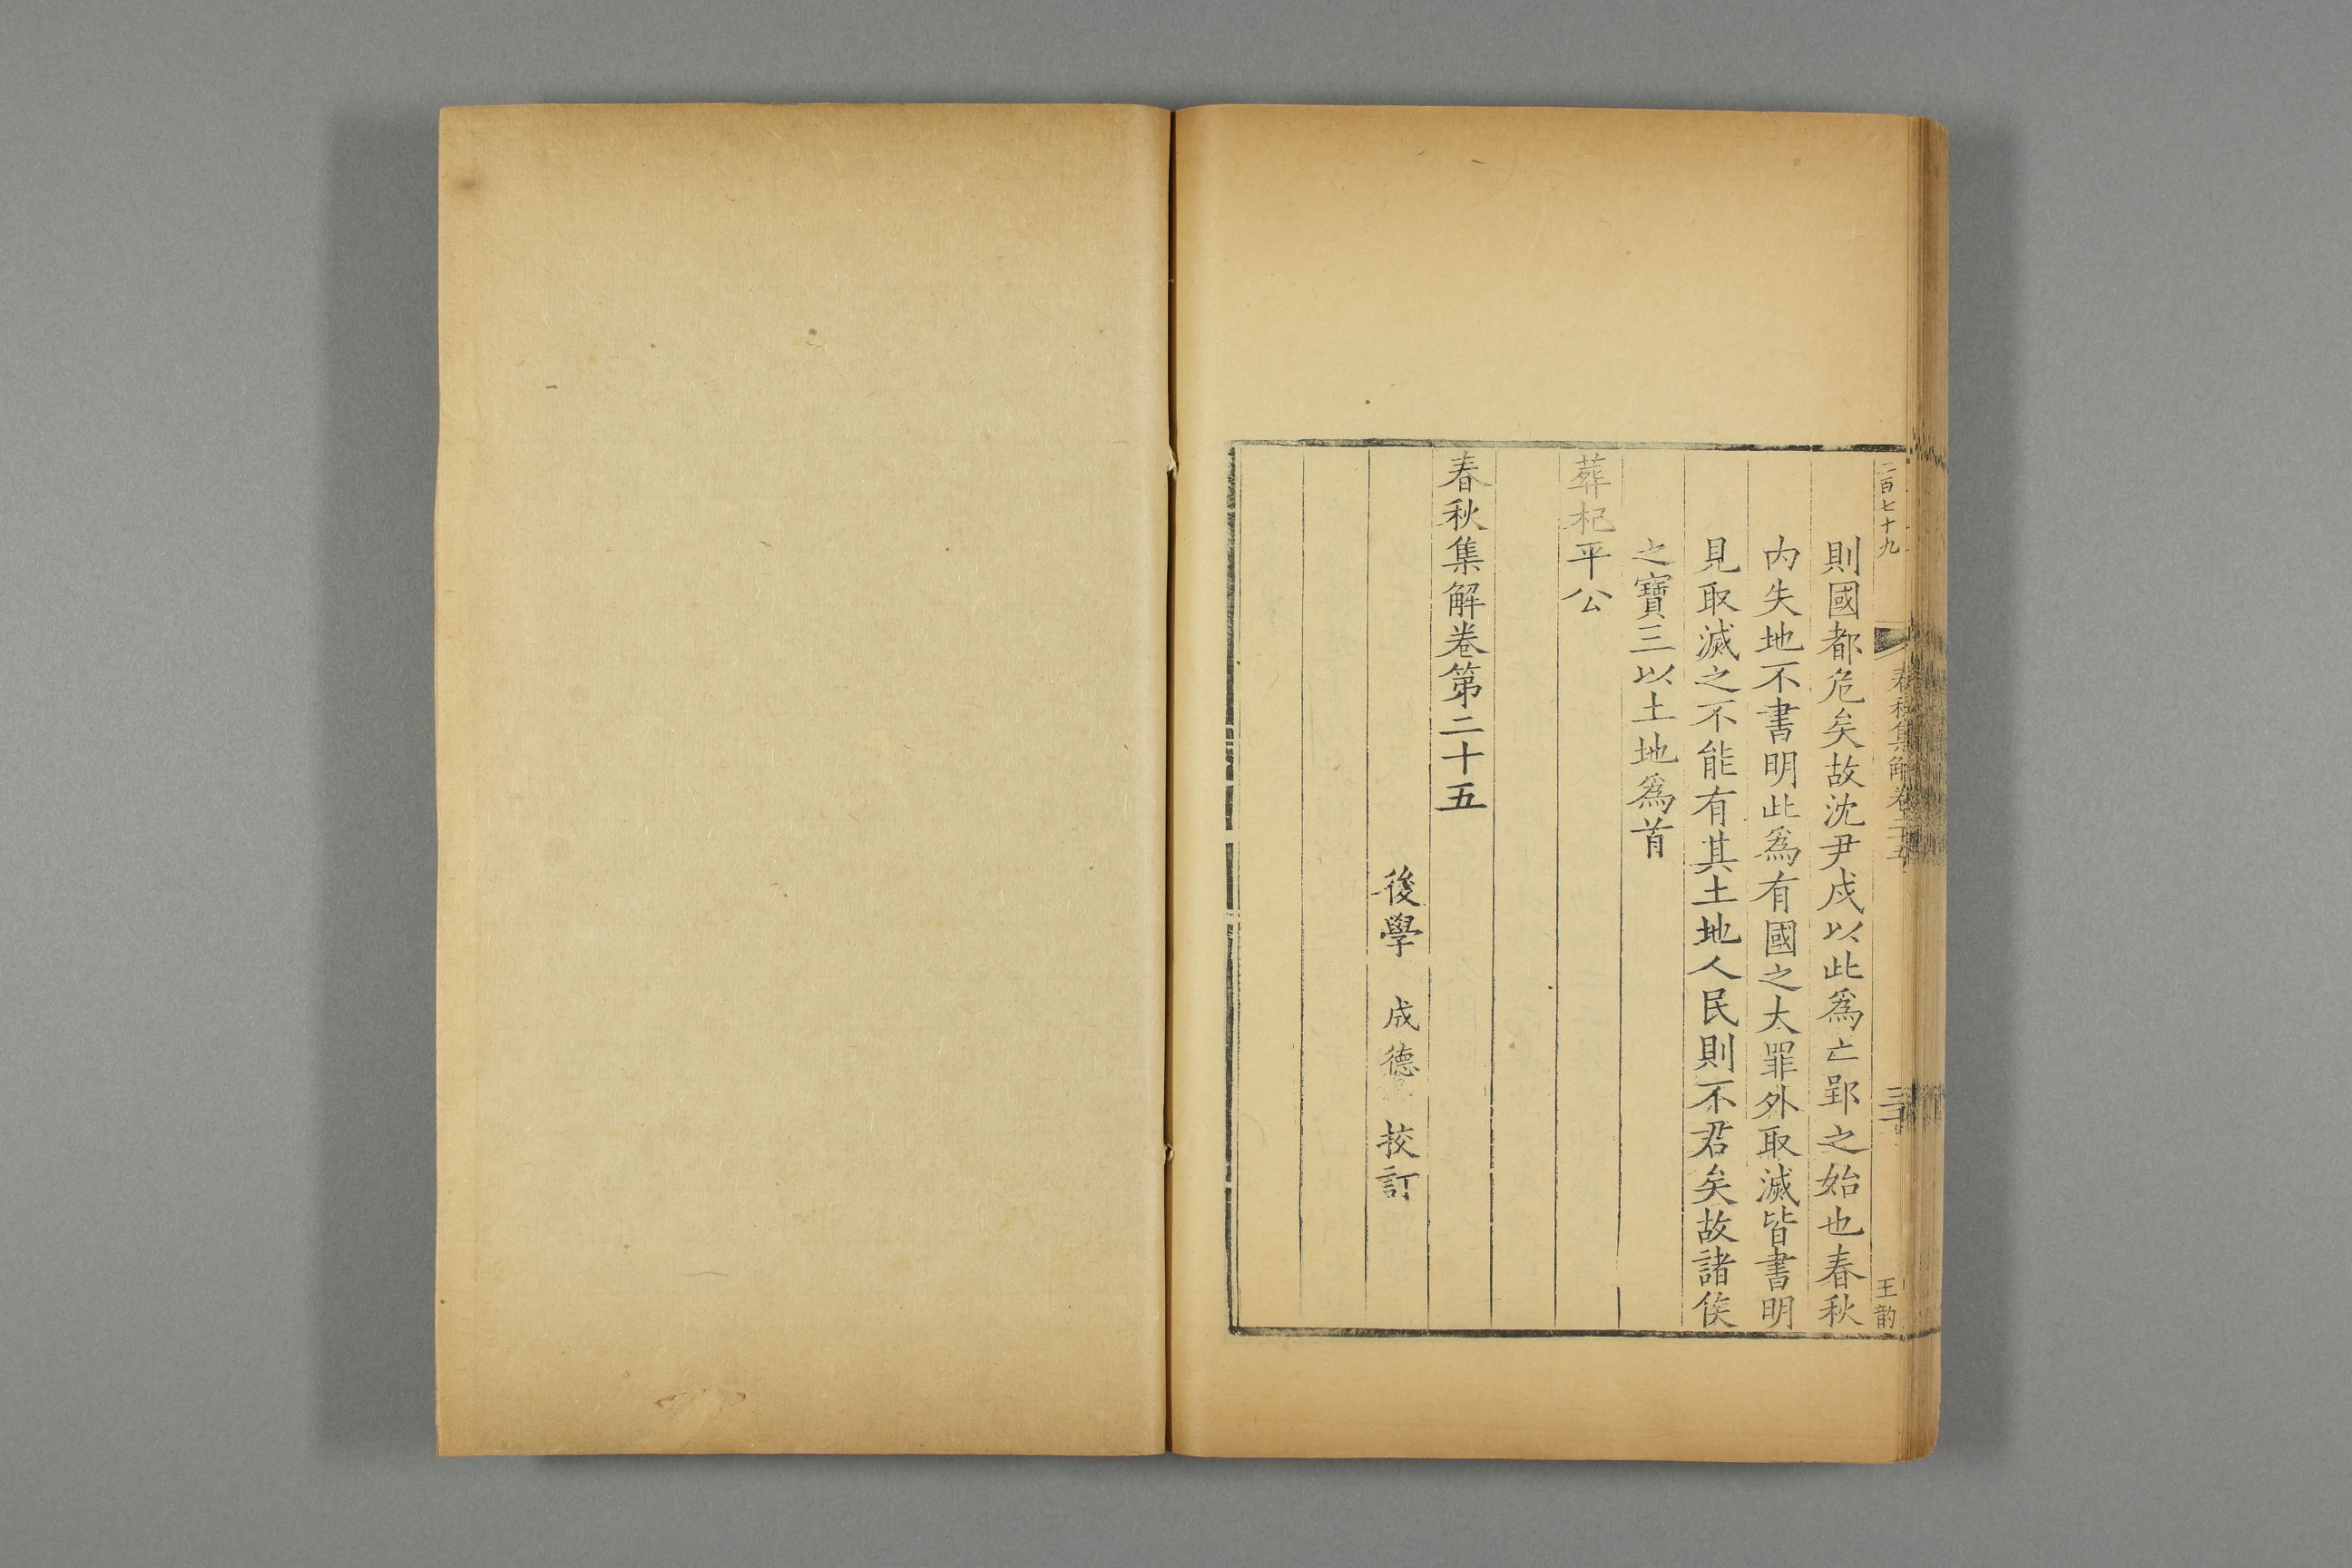 二百七十九
春秋集解卷二十五
王韵
則國都危矣故沈尹戍以此為亡郢之始也春秋
内失地不書明此為有國之大罪外取滅皆書明
見取滅之不能有其土地人民則不君矣故諸侯
之寶三以土地為首
葬杞平公
春秋集解卷第二十五
後學 成德 挍訂